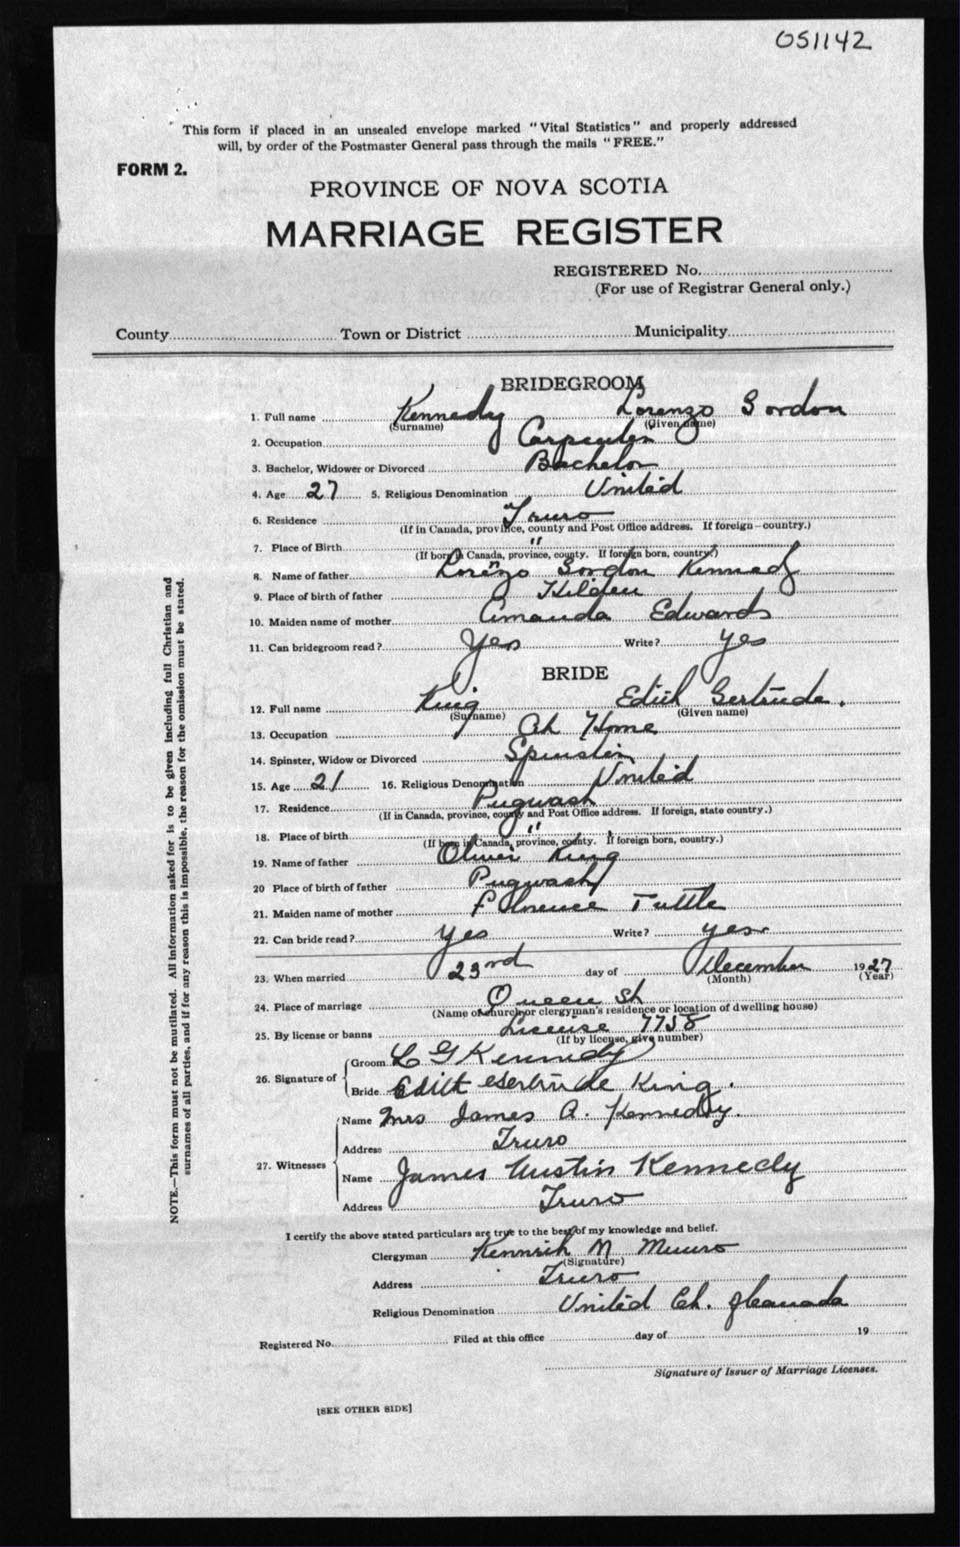 051142
This form if placed in an unsealed envelope marked "Vital Statistics" and properly addressed
will, by order of the Postmaster General pass through the mails "FREE."
FORM 2.
PROVINCE OF NOVA SCOTIA
MARRIAGE REGISTER
REGISTERED No.
(For use of Registrar General only.)
County Town or District Municipality
BRIDEGROOM
1. Full name Kennedy Lorenzo Gordon
(Surname) (Given name)
2. Occupation Carpenter
3. Bachelor, Widower or Divorced Bachelor
4. Age 27 5. Religious Denomination United
6. Residence Truro
(If in Canada, province, county and Post Office address. If foreign—country.)
7. Place of Birth "
(If born in Canada, province, county. If foreign born, country.)
8. Name of father Lorenzo Gordon Kennedy
9. Place of birth of father Hilden
10. Maiden name of mother Amanda Edwards
11. Can bridegroom read? Yes Write? yes
BRIDE
12. Full name King Edith Gertrude.
(Surname) (Given name)
13. Occupation At Home
14. Spinster, Widow or Divorced Spinster
15. Age 21 16. Religious Denomination United
17. Residence Pugwash
(If in Canada, province, county and Post Office address. If foreign, state country.)
18. Place of birth "
(If born in Canada, province, county. If foreign born, country.)
19. Name of father Oliver King
20 Place of birth of father Pugwash
21. Maiden name of mother Florence Tuttle
22. Can bride read? yes Write? yes
23. When married 23rd day of December 1927
(Month) (Year)
24. Place of marriage Queen St
(Name of church or clergyman's residence or location of dwelling house)
25. By license or banns License 7758
(If by license, give number)
26. Signature of Groom L G Kennedy
Bride Edith Gertrude King.
27. Witnesses Name Mrs James A. Kennedy.
Address Truro
Name James Austin Kennedy
Address Truro
I certify the above stated particulars are true to the best of my knowledge and belief.
Clergyman N Munro
(Signature)
Address Truro
Religious Denomination United Ch. of Canada
Registered No. Filed at this office day of 19
Signature of Issuer of Marriage Licenses.
[SEE OTHER SIDE]
NOTE.—This form must not be mutilated. All information asked for is to be given including full Christian and
surnames of all parties, and if for any reason this is impossible, the reason for the omission must be stated.